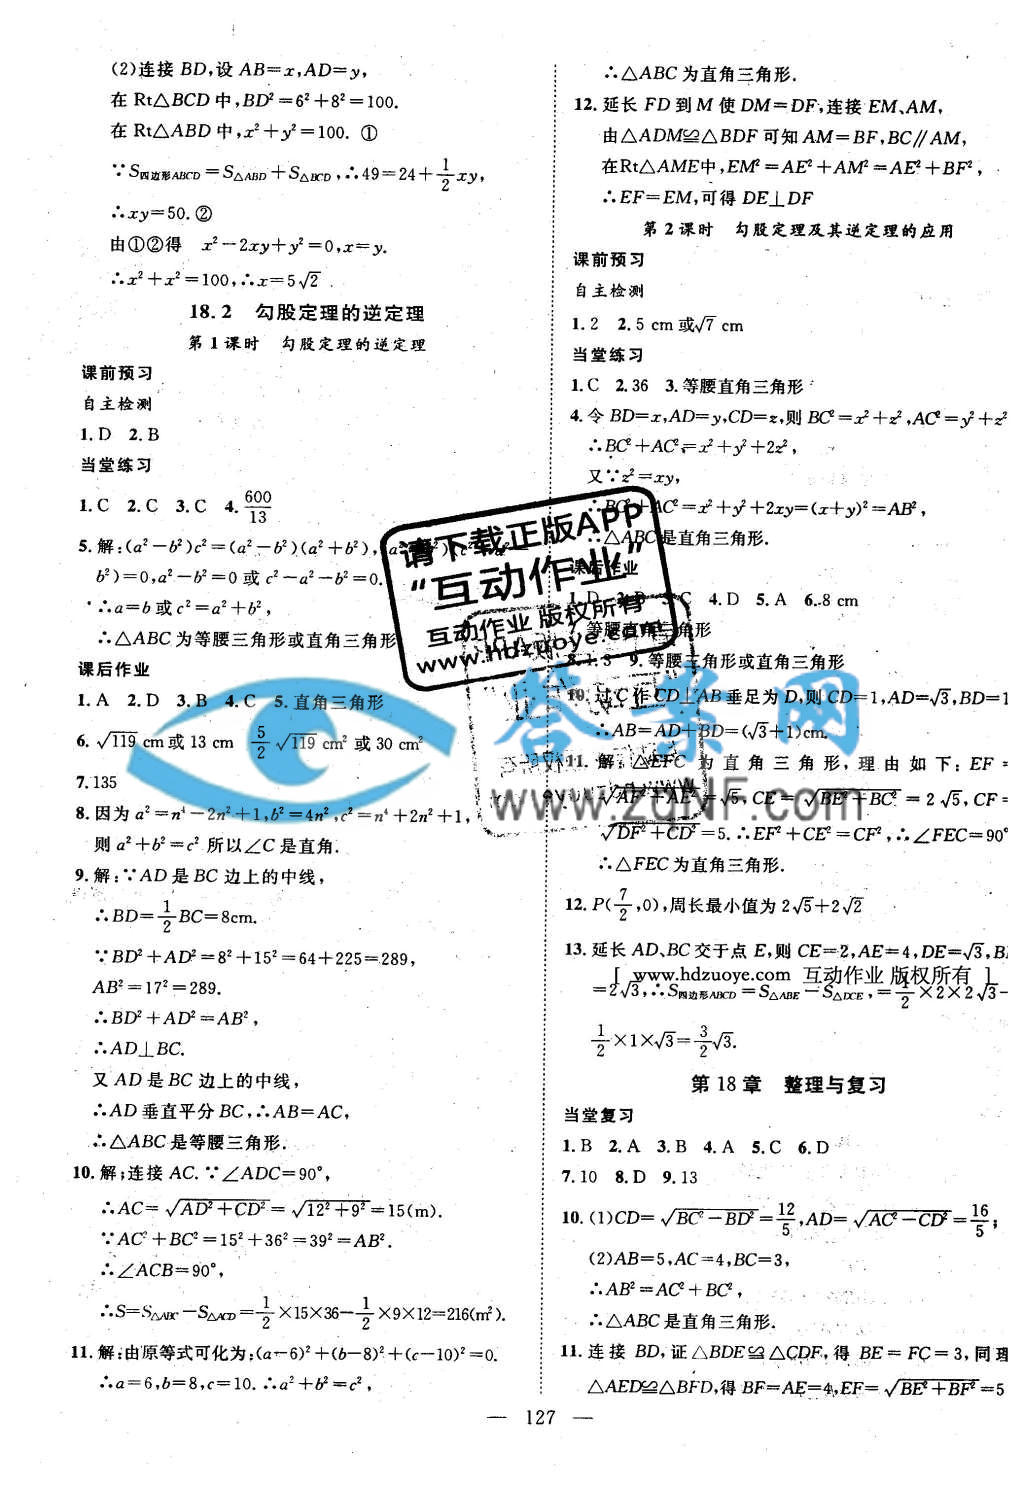 (2)连接 BD,设 AB=x,AD=y,
在 Rt△BCD 中,BD²=6²+8²=100.
在 Rt△ABD 中,x²+y²=100. ①
∵S四边形ABCD=S△ABD+S△BCD,∴49=24+1/2xy,
∴xy=50. ②
由①②得 x²-2xy+y²=0,x=y.
∴x²+x²=100,∴x=5√2.
18.2 勾股定理的逆定理
第1课时 勾股定理的逆定理
课前预习
自主检测
1.D 2.B
当堂练习
1.C 2.C 3.C 4.600/13
5.解:(a²-b²)c²=(a²-b²)(a²+b²),
b²)=0,a²-b²=0 或 c²-a²-b²=0.
∴a=b或 c²=a²+b²,
∴△ABC 为等腰三角形或直角三角形
课后作业
1.A 2.D 3.B 4.C 5.直角三角形
6.√119 cm 或 13 cm 5/2√119 cm² 或 30 cm²
7.135
8.因为 a²=n⁴-2n²+1,b²=4n²,c²=n⁴+2n²+1,
则 a²+b²=c² 所以∠C 是直角.
9.解:∵AD 是 BC 边上的中线,
∴BD=1/2BC=8cm.
∵BD²+AD²=8²+15²=64+225=289,
AB²=17²=289.
∴BD²+AD²=AB²,
∴AD⊥BC.
又 AD 是 BC 边上的中线,
∴AD 垂直平分 BC,∴AB=AC,
∴△ABC 是等腰三角形.
10.解;连接 AC.∵∠ADC=90°,
∴AC=√AD²+CD²=√12²+9²=15(m).
∵AC²+BC²=15²+36²=39²=AB².
∴∠ACB=90°,
∴S=S△ABC-S△ACD=1/2×15×36-1/2×9×12=216(m²).
11.解:由原等式可化为:(a-6)²+(b-8)²+(c-10)²=0.
∴a=6,b=8,c=10.∴a²+b²=c²,
∴△ABC 为直角三角形.
12.延长 FD 到 M 使 DM=DF,连接 EM、AM,
由△ADM≌△BDF 可知 AM=BF,BC∥AM,
在Rt△AME中,EM²=AE²+AM²=AE²+BF²,
∴EF=EM,可得 DE⊥DF
第2课时 勾股定理及其逆定理的应用
课前预习
自主检测
1.2 2.5 cm 或√7 cm
当堂练习
1.C 2.36 3.等腰直角三角形
4.令 BD=x,AD=y,CD=z,则 BC²=x²+z²,AC²=y²+z²
∴BC²+AC²=x²+y²+2z²,
又∵z²=xy,
∴BC²+AC²=x²+y²+2xy=(x+y)²=AB²,
∴△ABC是直角三角形.
课后作业
1.D 2.B 3.C 4.D 5.A 6.8 cm
7.等腰直角三角形
8.1.3 9.等腰三角形或直角三角形
10.过 C 作 CD⊥AB 垂足为 D,则 CD=1,AD=√3,BD=1
∴AB=AD+BD=(√3+1)cm.
11.解:△EFC 为直角三角形,理由如下:EF=
√AF²+AE²=√5,CE=√BE²+BC²=2√5,CF=
√DF²+CD²=5.∴EF²+CE²=CF²,∴∠FEC=90°
∴△FEC 为直角三角形.
12.P(7/2,0),周长最小值为 2√5+2√2
13.延长 AD、BC 交于点 E,则 CE=2,AE=4,DE=√3,B
=2√3,∴S四边形ABCD=S△ABE-S△DCE,=1/2×2×2√3-
1/2×1×√3=3/2√3.
第18章 整理与复习
当堂复习
1.B 2.A 3.B 4.A 5.C 6.D
7.10 8.D 9.13
10.(1)CD=√BC²-BD²=12/5,AD=√AC²-CD²=16/5;
(2)AB=5,AC=4,BC=3,
∴AB²=AC²+BC²,
∴△ABC 是直角三角形.
11.连接 BD,证△BDE≌△CDF,得 BE=FC=3,同理
△AED≌△BFD,得 BF=AE=4,EF=√BE²+BF²=5
— 127 —
请下载正版APP
“互动作业”
互动作业 版权所有
www.hbzuoye.com
答案网
www.zqNF.com
[ www.hdzuoye.com 互动作业 版权所有 ]